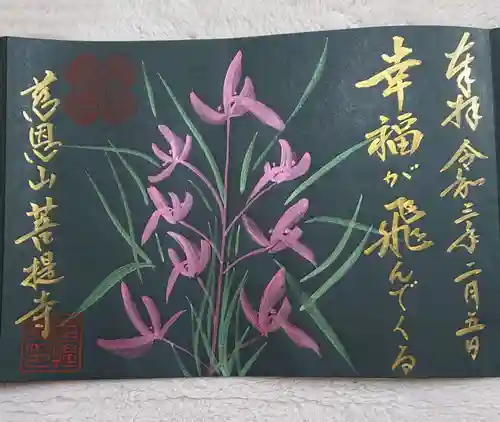 奉拝 令和三年二月五日
幸福が飛んでくる
慈恩山菩提寺